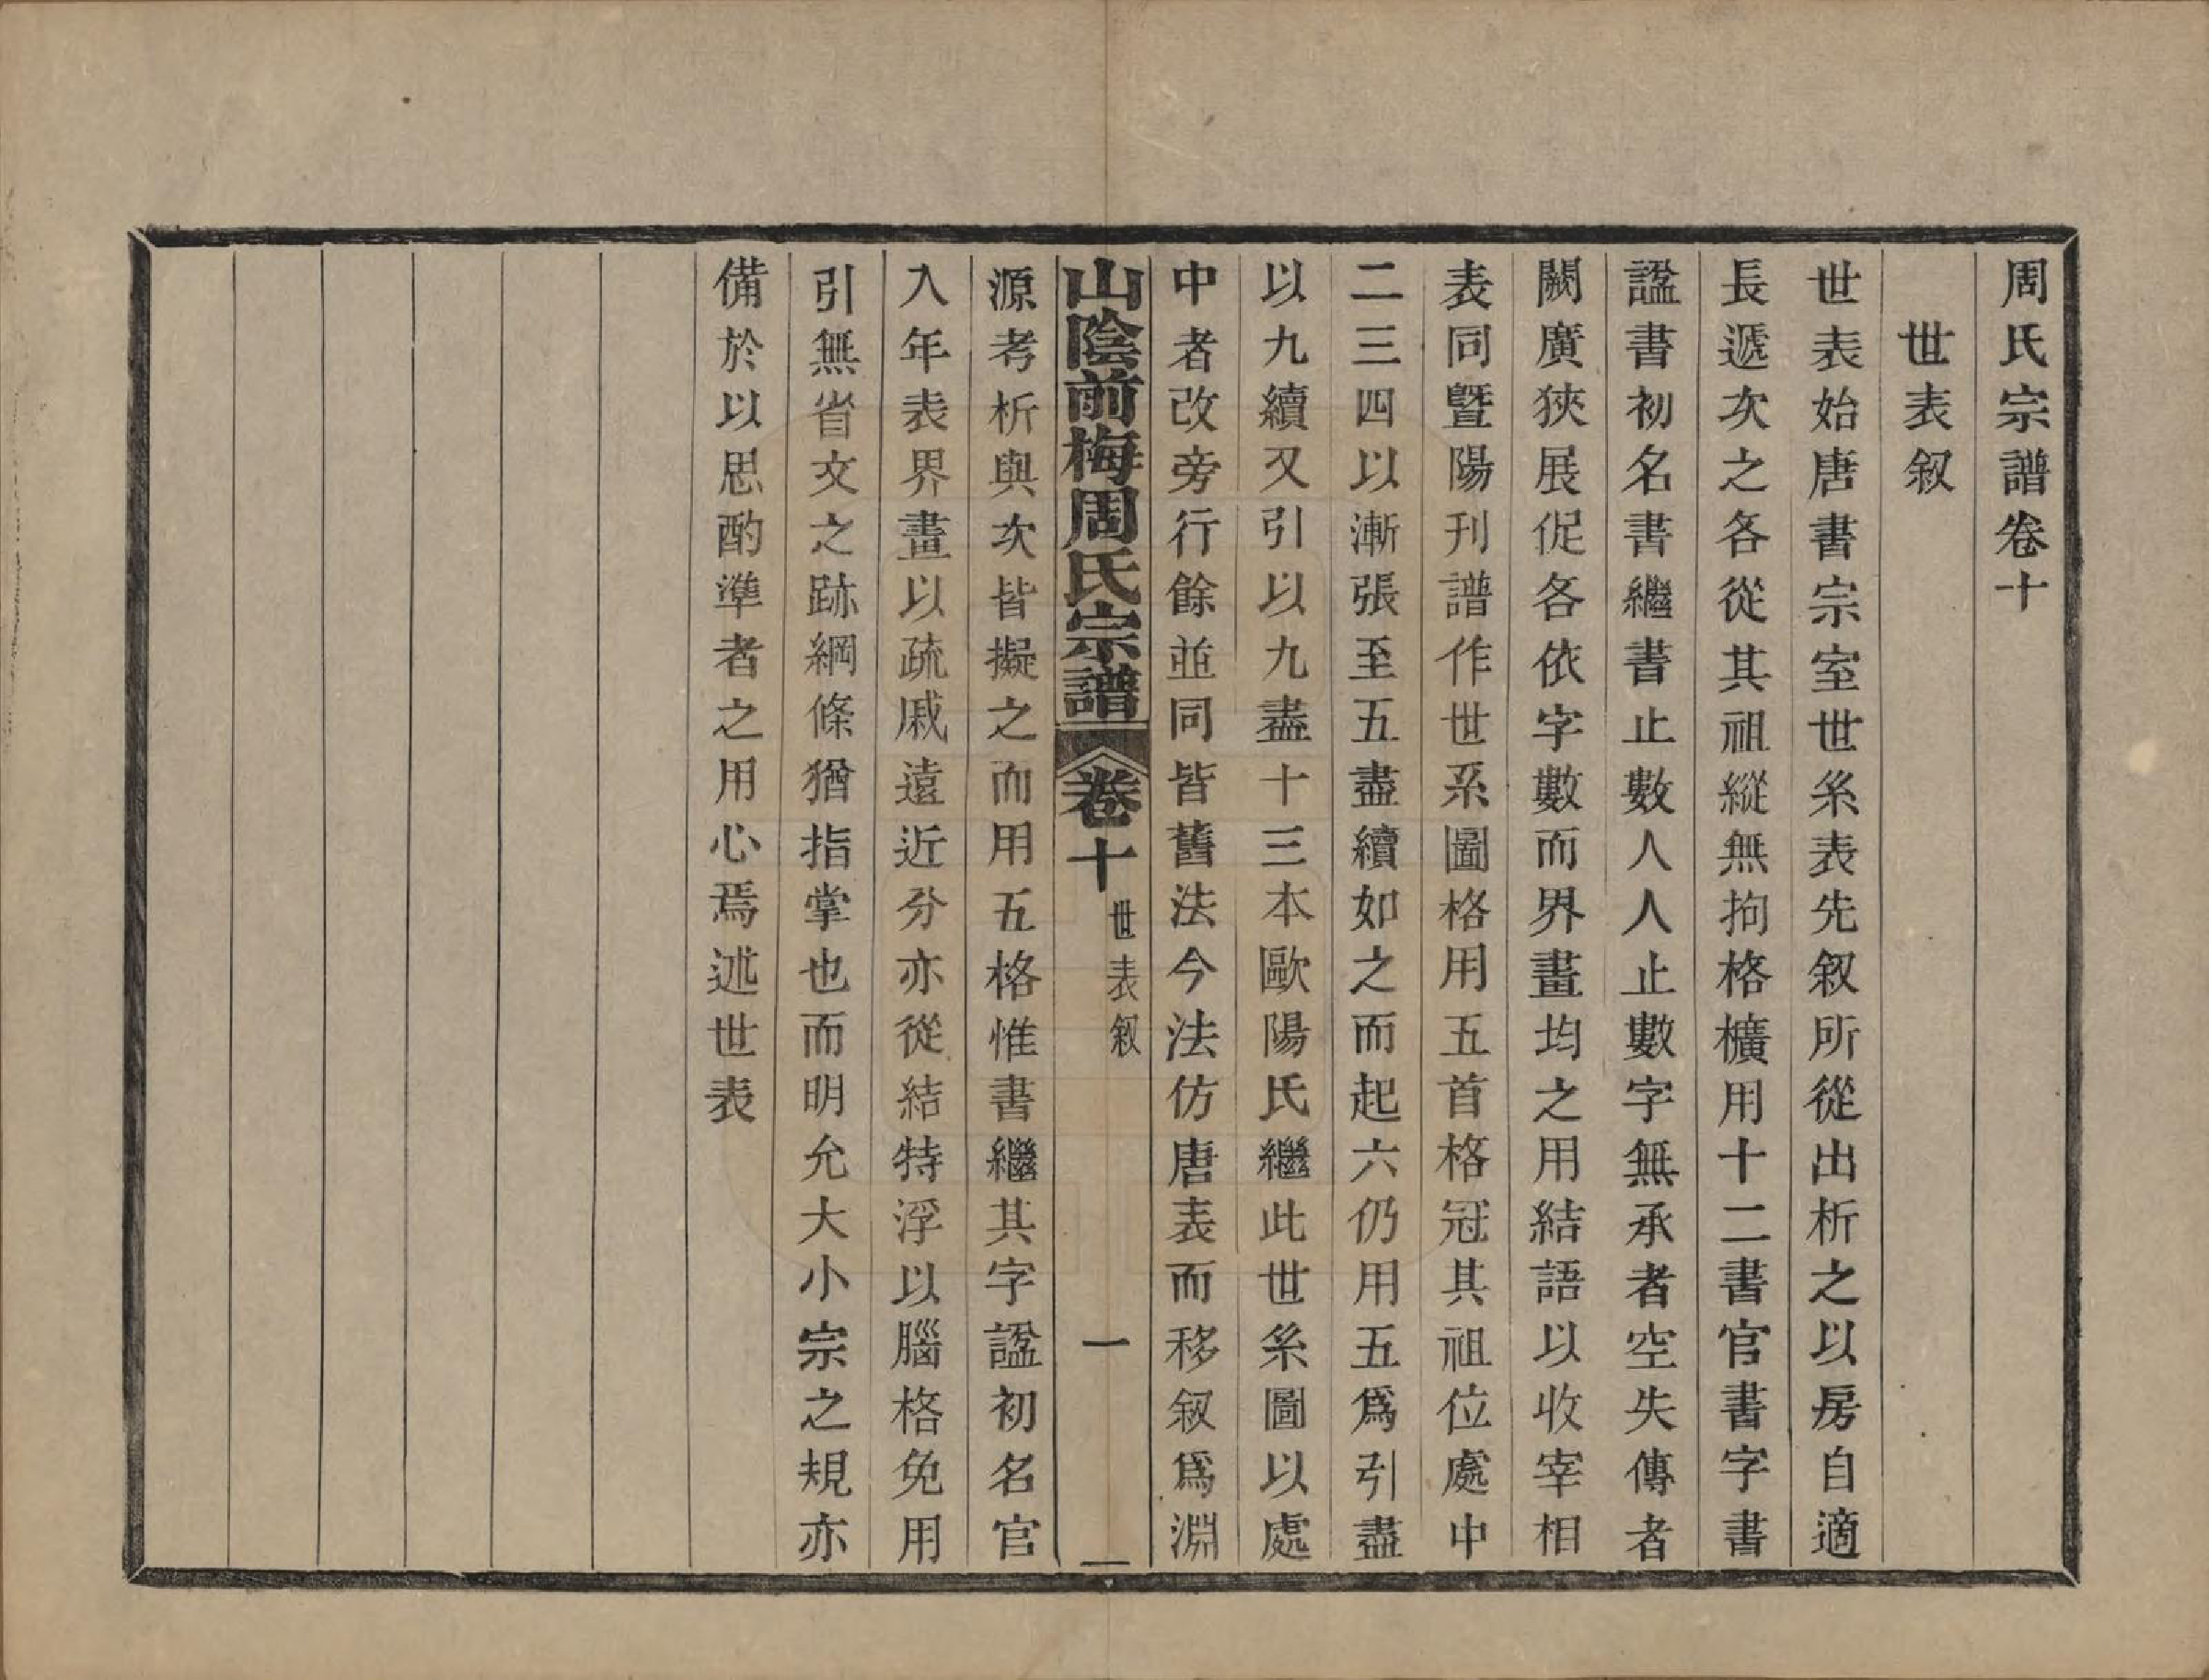 周氏宗譜卷十
世表叙
世表始唐書宗室世系表先叙所從出析之以房自適
長遞次之各從其祖縱無拘格橫用十二書官書字書
諡書初名書繼書止數人人止數字無承者空失傳者
闕廣狹展促各依字數而界畫均之用結語以收宰相
表同暨陽刊譜作世系圖格用五首格冠其祖位處中
二三四以漸張至五盡續如之而起六仍用五爲引盡
以九續又引以九盡十三本歐陽氏繼此世系圖以處
中者改旁行餘並同皆舊法今法仿唐表而移叙爲淵
山陰前梅周氏宗譜 卷十 世表叙 一
源考析與次皆擬之而用五格惟書繼其字諡初名官
入年表界畫以疏戚遠近分亦從結特浮以腦格免用
引無省文之跡綱條猶指掌也而明允大小宗之規亦
備於以思酌準者之用心焉述世表